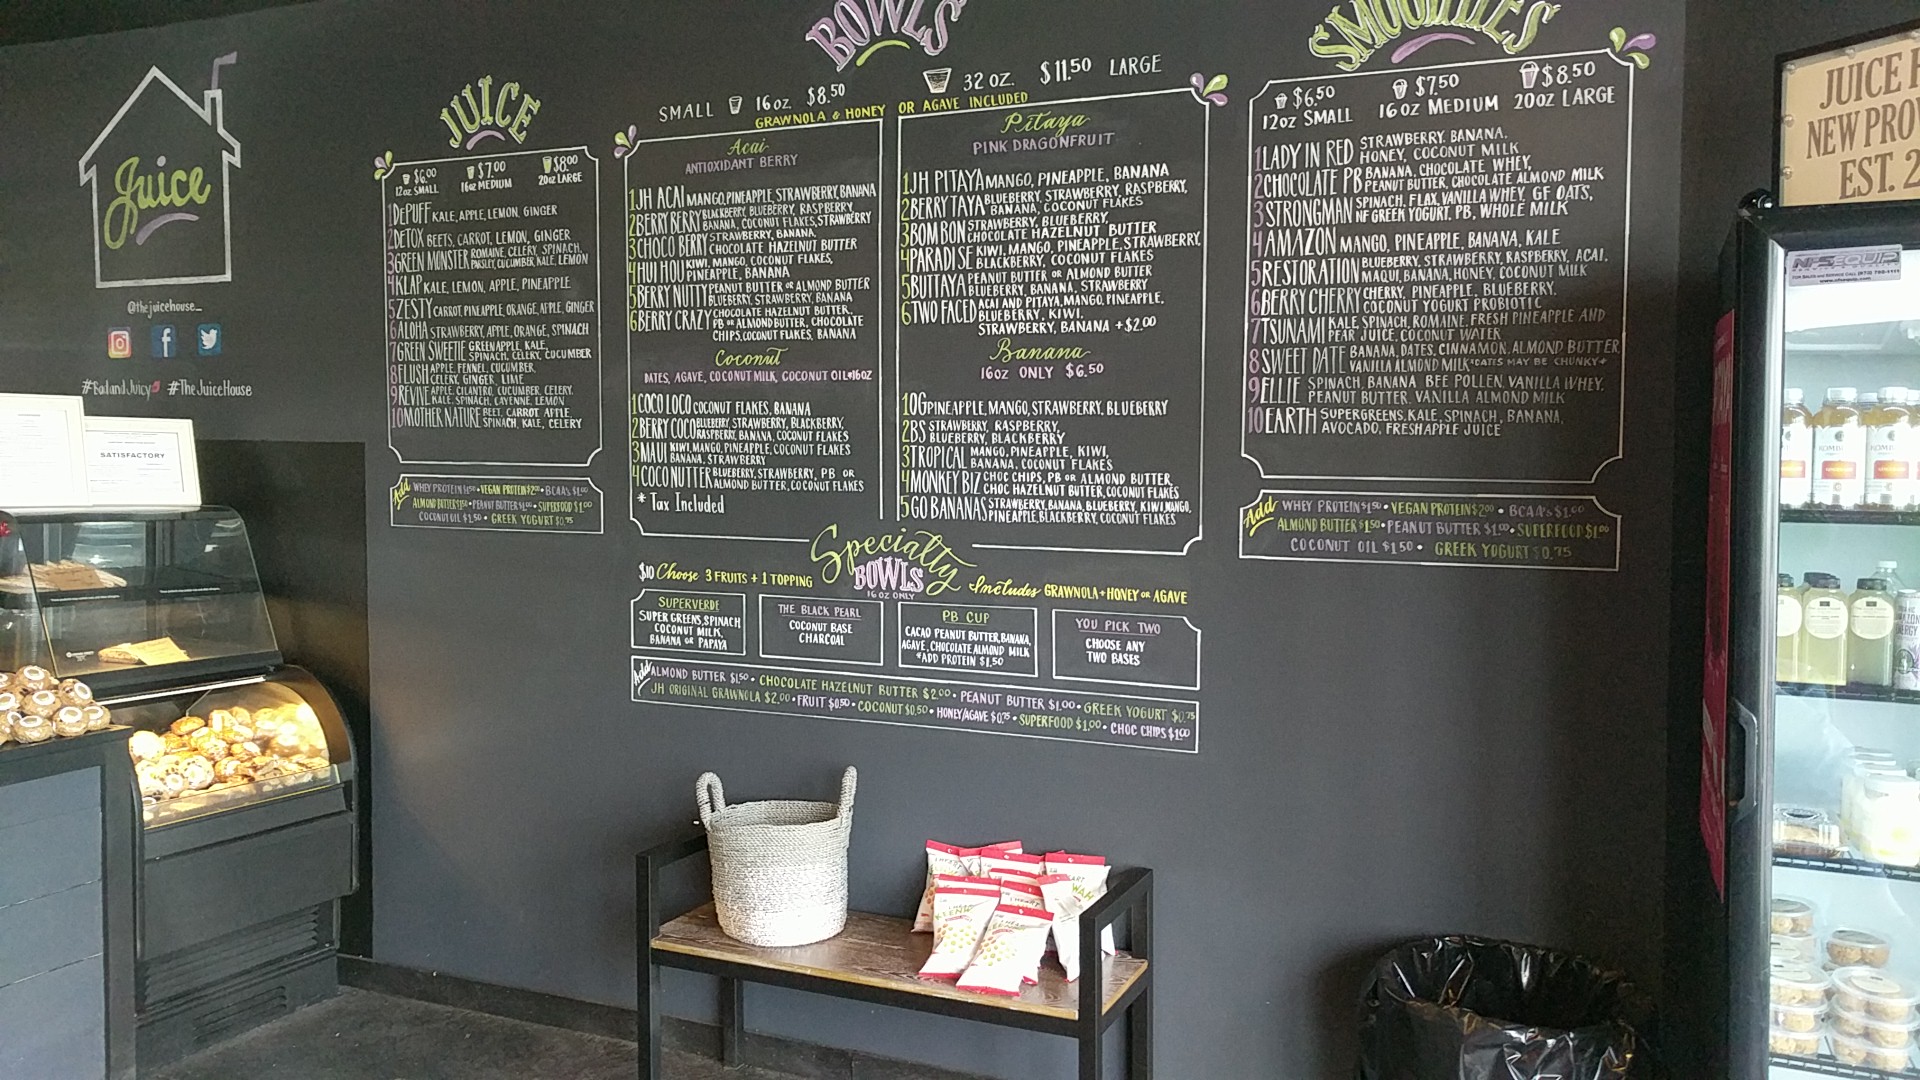 Juice
@thejuicehouse_
#RadandJuicy #TheJuiceHouse
SATISFACTORY
JUICE
$6.00 $7.00 $8.00
12oz SMALL 16oz MEDIUM 20oz LARGE
1 DePUFF KALE, APPLE, LEMON, GINGER
2 DETOX BEETS, CARROT, LEMON, GINGER
3 GREEN MONSTER ROMAINE, CELERY, SPINACH,
PARSLEY, CUCUMBER, KALE, LEMON
4 KLAP KALE, LEMON, APPLE, PINEAPPLE
5 ZESTY CARROT, PINEAPPLE, ORANGE, APPLE, GINGER
6 ALOHA STRAWBERRY, APPLE, ORANGE, SPINACH
7 GREEN SWEETIE GREEN APPLE, KALE,
SPINACH, CELERY, CUCUMBER
8 FLUSH APPLE, FENNEL, CUCUMBER,
CELERY, GINGER, LIME
9 REVIVE APPLE, CILANTRO, CUCUMBER, CELERY,
KALE, SPINACH, CAYENNE, LEMON
10 MOTHER NATURE BEET, CARROT, APPLE,
SPINACH, KALE, CELERY
Add WHEY PROTEIN $1.50 • VEGAN PROTEIN $2.00 • BCAA's $1.00
ALMOND BUTTER $1.50 • PEANUT BUTTER $1.00 • SUPERFOOD $1.00
COCONUT OIL $1.50 • GREEK YOGURT $0.75
BOWLS
SMALL 16oz. $8.50 32 OZ. $11.50 LARGE
GRAWNOLA & HONEY OR AGAVE INCLUDED
Acai
ANTIOXIDANT BERRY
1 JH ACAI MANGO, PINEAPPLE, STRAWBERRY, BANANA
2 BERRY BERRY BLACKBERRY, BLUEBERRY, RASPBERRY,
BANANA, COCONUT FLAKES, STRAWBERRY
3 CHOCO BERRY STRAWBERRY, BANANA,
CHOCOLATE HAZELNUT BUTTER
4 HUI HOU KIWI, MANGO, COCONUT FLAKES,
PINEAPPLE, BANANA
5 BERRY NUTTY PEANUT BUTTER OR ALMOND BUTTER
BLUEBERRY, STRAWBERRY, BANANA
6 BERRY CRAZY CHOCOLATE HAZELNUT BUTTER,
PB OR ALMOND BUTTER, CHOCOLATE
CHIPS, COCONUT FLAKES, BANANA
Coconut
DATES, AGAVE, COCONUT MILK, COCONUT OIL *16oz
1 COCO LOCO COCONUT FLAKES, BANANA
2 BERRY COCO BLUEBERRY, STRAWBERRY, BLACKBERRY,
RASPBERRY, BANANA, COCONUT FLAKES
3 MAUI KIWI, MANGO, PINEAPPLE, COCONUT FLAKES
BANANA, STRAWBERRY
4 COCO NUTTER BLUEBERRY, STRAWBERRY, PB OR
ALMOND BUTTER, COCONUT FLAKES
* Tax Included
Pitaya
PINK DRAGONFRUIT
1 JH PITAYA MANGO, PINEAPPLE, BANANA
2 BERRY TAYA BLUEBERRY, STRAWBERRY, RASPBERRY,
BANANA, COCONUT FLAKES
3 BOM BON STRAWBERRY, BLUEBERRY,
CHOCOLATE HAZELNUT BUTTER
4 PARADISE KIWI, MANGO, PINEAPPLE, STRAWBERRY,
BLACKBERRY, COCONUT FLAKES
5 BUTTAYA PEANUT BUTTER OR ALMOND BUTTER
BLUEBERRY, BANANA, STRAWBERRY
6 TWO FACED ACAI AND PITAYA, MANGO, PINEAPPLE,
BLUEBERRY, KIWI,
STRAWBERRY, BANANA + $2.00
Banana
16oz ONLY $6.50
1 OG PINEAPPLE, MANGO, STRAWBERRY, BLUEBERRY
2 BS STRAWBERRY, RASPBERRY,
BLUEBERRY, BLACKBERRY
3 TROPICAL MANGO, PINEAPPLE, KIWI,
BANANA, COCONUT FLAKES
4 MONKEY BIZ CHOC CHIPS, PB OR ALMOND BUTTER,
CHOC HAZELNUT BUTTER, COCONUT FLAKES
5 GO BANANAS STRAWBERRY, BANANA, BLUEBERRY, KIWI, MANGO,
PINEAPPLE, BLACKBERRY, COCONUT FLAKES
Specialty
BOWLS
16 OZ ONLY
$10 Choose 3 FRUITS + 1 TOPPING
Includes GRAWNOLA + HONEY OR AGAVE
SUPERVERDE
SUPER GREENS, SPINACH
COCONUT MILK,
BANANA OR PAPAYA
THE BLACK PEARL
COCONUT BASE
CHARCOAL
PB CUP
CACAO PEANUT BUTTER, BANANA,
AGAVE, CHOCOLATE ALMOND MILK
*ADD PROTEIN $1.50
YOU PICK TWO
CHOOSE ANY
TWO BASES
Add ALMOND BUTTER $1.50 • CHOCOLATE HAZELNUT BUTTER $2.00 • PEANUT BUTTER $1.00 • GREEK YOGURT $0.75
JH ORIGINAL GRAWNOLA $2.00 • FRUIT $0.50 • COCONUT $0.50 • HONEY/AGAVE $0.75 • SUPERFOOD $1.00 • CHOC CHIPS $1.00
SMOOTHIES
$6.50 $7.50 $8.50
12oz SMALL 16oz MEDIUM 20oz LARGE
1 LADY IN RED STRAWBERRY, BANANA,
HONEY, COCONUT MILK
2 CHOCOLATE PB BANANA, CHOCOLATE WHEY,
PEANUT BUTTER, CHOCOLATE ALMOND MILK
3 STRONGMAN SPINACH, FLAX, VANILLA WHEY, GF OATS,
NF GREEK YOGURT, PB, WHOLE MILK
4 AMAZON MANGO, PINEAPPLE, BANANA, KALE
5 RESTORATION BLUEBERRY, STRAWBERRY, RASPBERRY, ACAI,
MAQUI, BANANA, HONEY, COCONUT MILK
6 BERRY CHERRY CHERRY, PINEAPPLE, BLUEBERRY,
COCONUT YOGURT PROBIOTIC
7 TSUNAMI KALE, SPINACH, ROMAINE, FRESH PINEAPPLE AND
PEAR JUICE, COCONUT WATER
8 SWEET DATE BANANA, DATES, CINNAMON, ALMOND BUTTER,
VANILLA ALMOND MILK *DATES MAY BE CHUNKY*
9 ELLIE SPINACH, BANANA BEE POLLEN, VANILLA WHEY,
PEANUT BUTTER, VANILLA ALMOND MILK
10 EARTH SUPERGREENS, KALE, SPINACH, BANANA,
AVOCADO, FRESH APPLE JUICE
Add WHEY PROTEIN $1.50 • VEGAN PROTEIN $2.00 • BCAA's $1.00
ALMOND BUTTER $1.50 • PEANUT BUTTER $1.00 • SUPERFOOD $1.00
COCONUT OIL $1.50 • GREEK YOGURT $0.75
JUICE H
NEW PROV
EST. 2